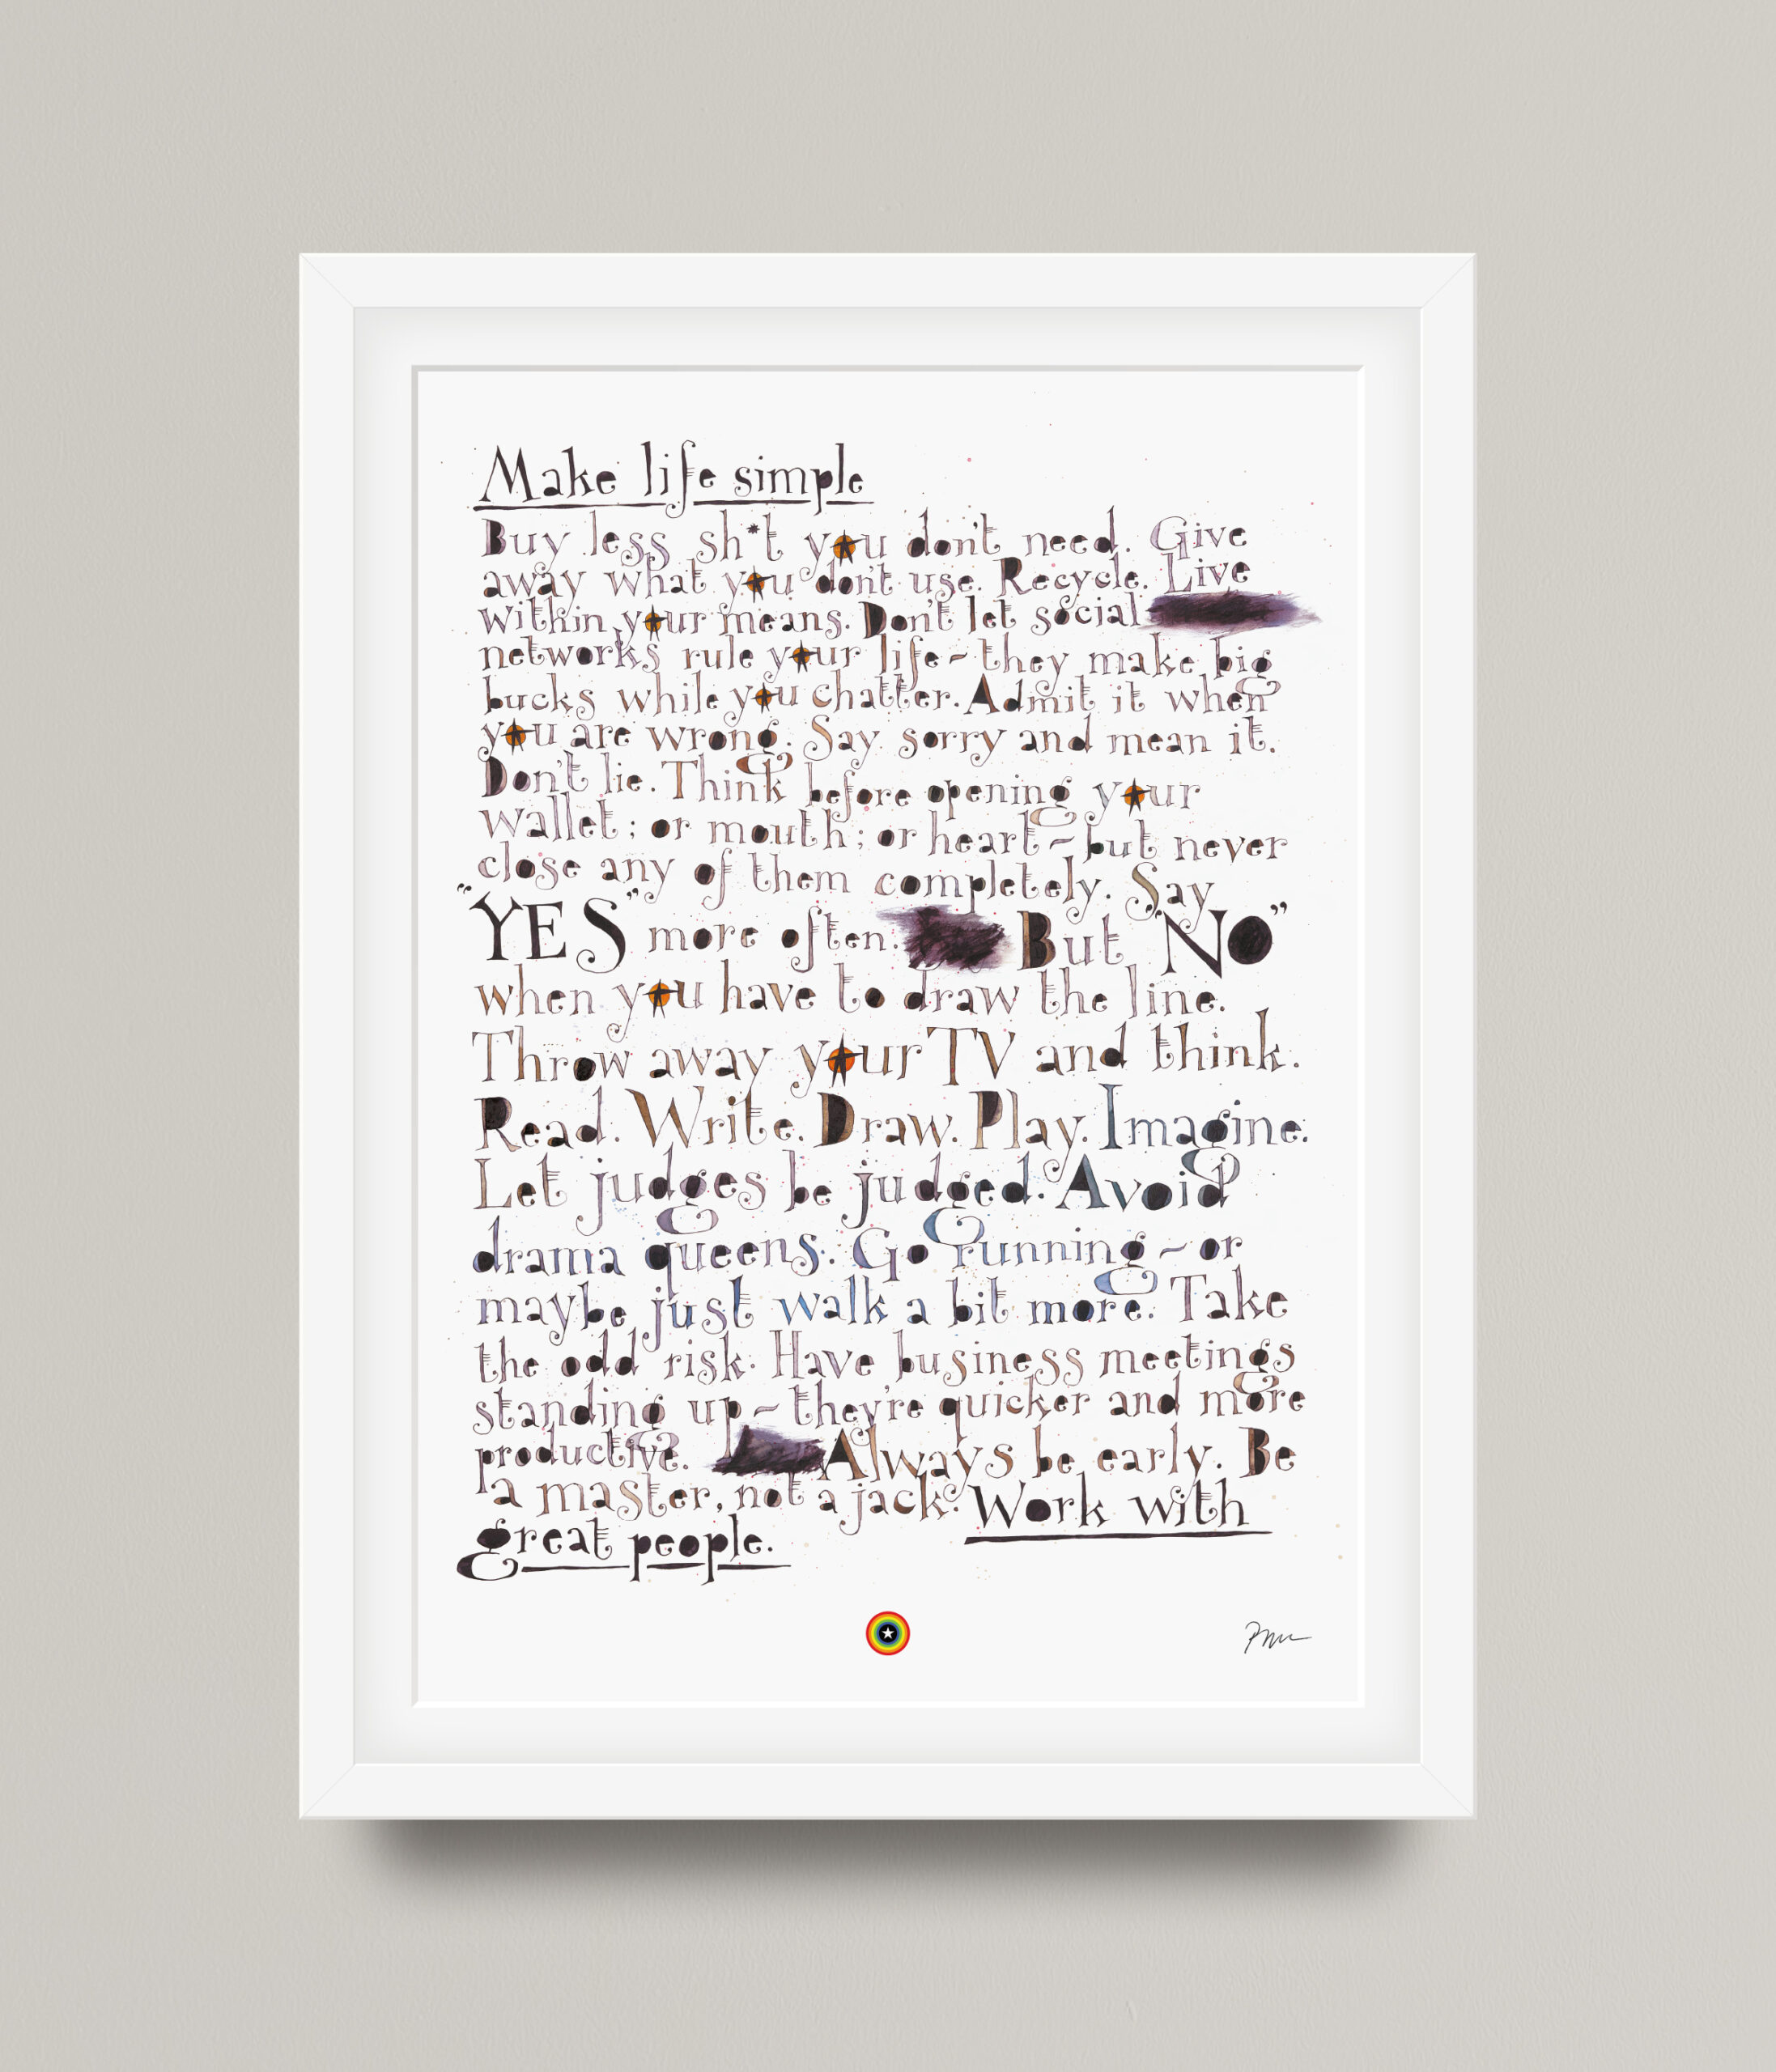 Make life simple
Buy less sh*t you don't need. Give
away what you don't use. Recycle. Live
within your means. Don't let social
networks rule your life - they make big
bucks while you chatter. Admit it when
you are wrong. Say sorry and mean it.
Don't lie. Think before opening your
wallet; or mouth; or heart - but never
close any of them completely. Say
"YES" more often. But "NO"
when you have to draw the line.
Throw away your TV and think.
Read. Write. Draw. Play. Imagine.
Let judges be judged. Avoid
drama queens. Go running - or
maybe just walk a bit more. Take
the odd risk. Have business meetings
standing up - they're quicker and more
productive. Always be early. Be
a master, not a jack. Work with
great people.